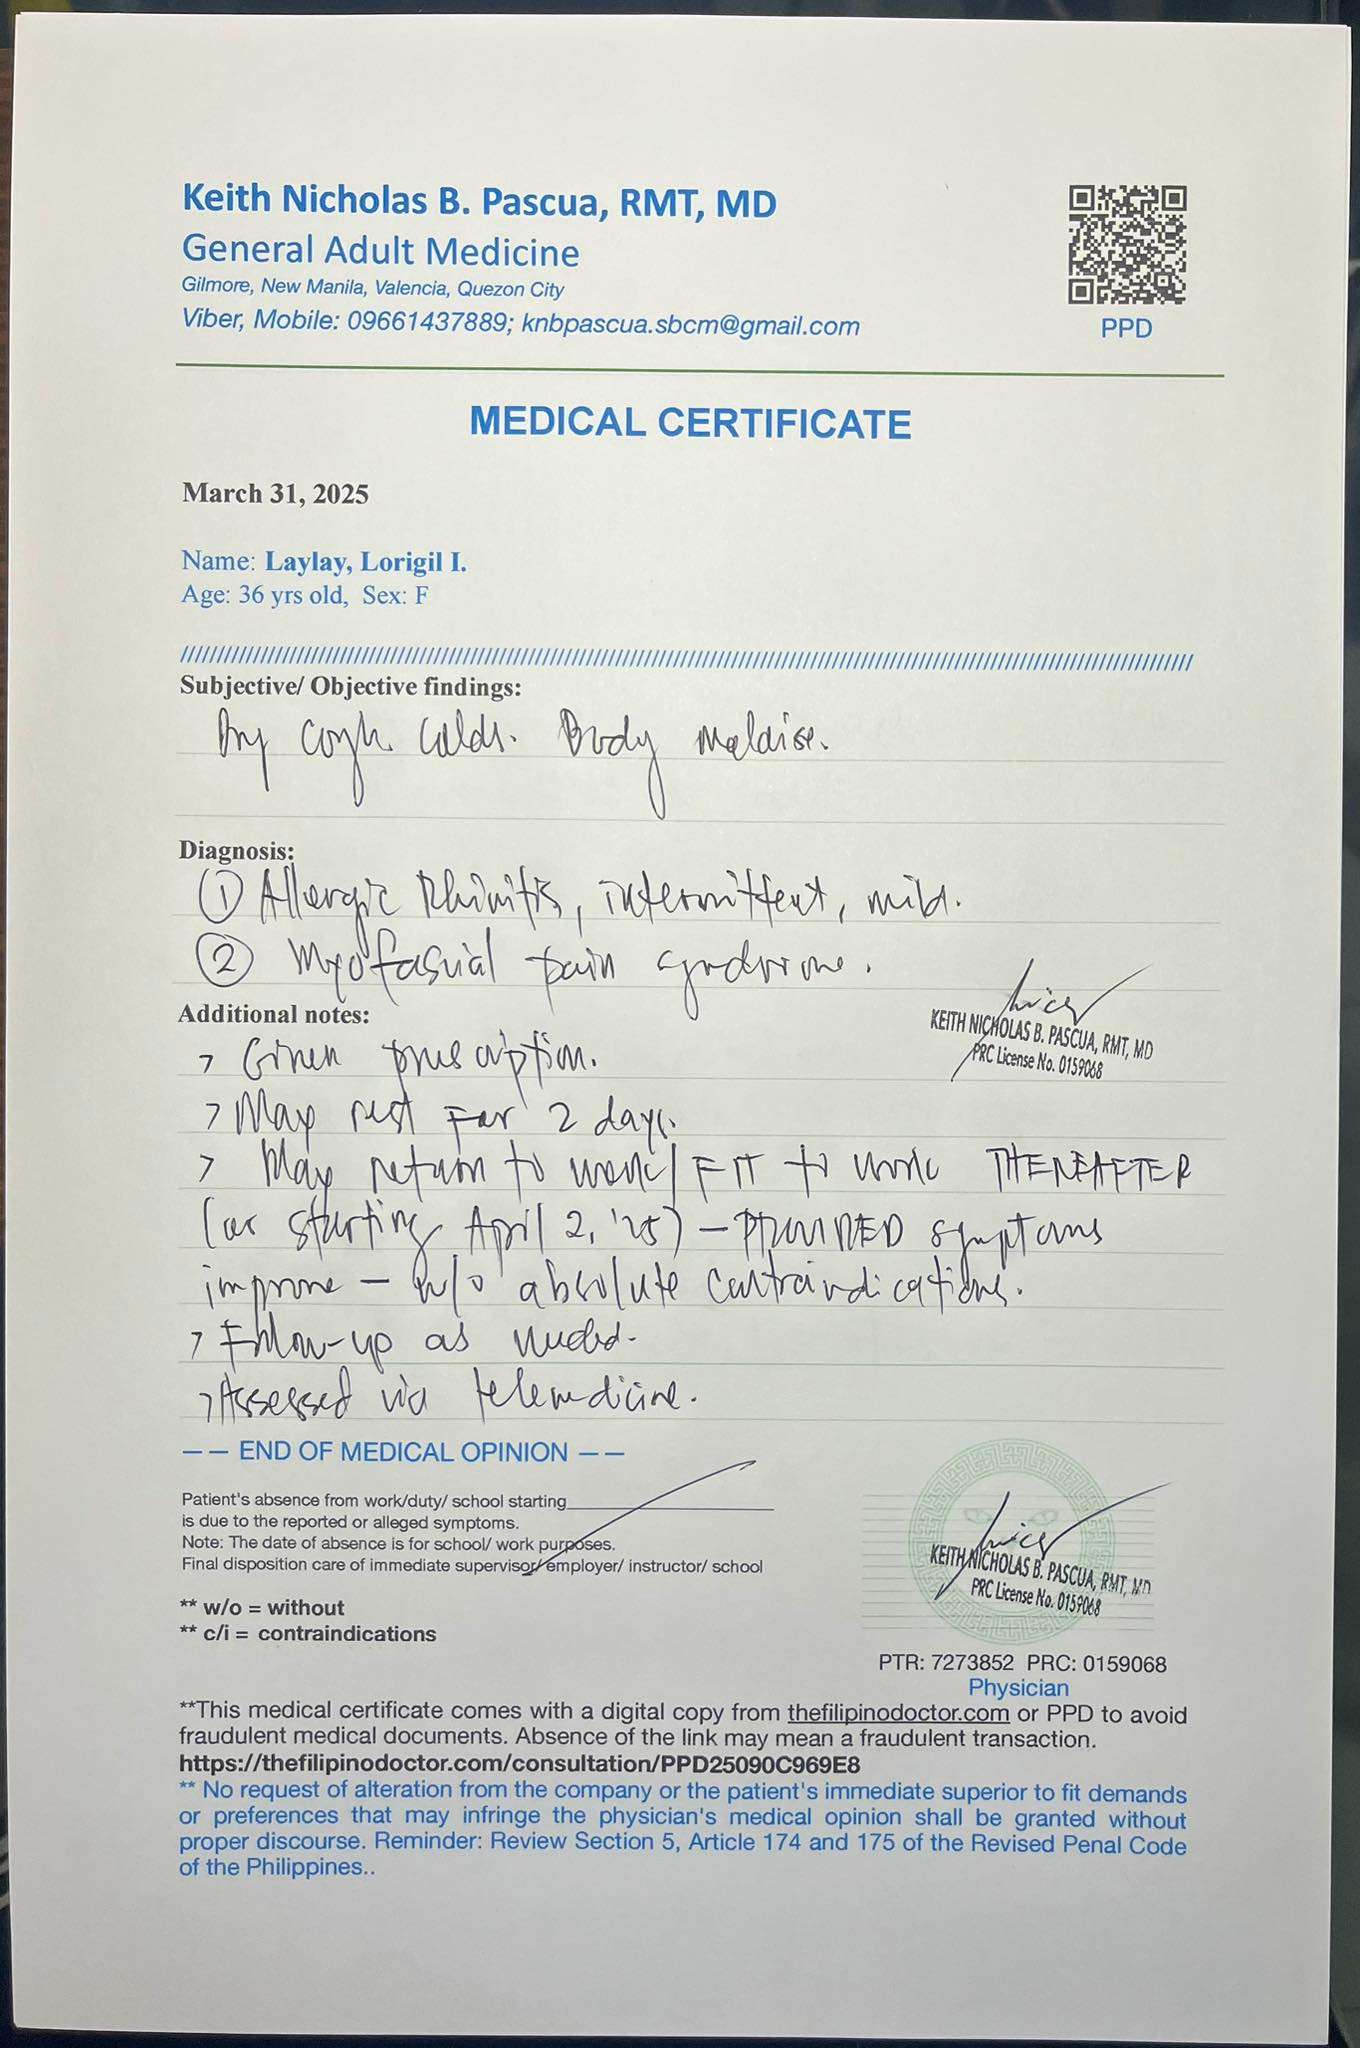 Keith Nicholas B. Pascua, RMT, MD
General Adult Medicine
Gilmore, New Manila, Valencia, Quezon City
Viber, Mobile: 09661437889; knbpascua.sbcm@gmail.com
PPD
MEDICAL CERTIFICATE
March 31, 2025
Name: Laylay, Lorigil I.
Age: 36 yrs old, Sex: F
////////////////////////////////////////////////////////////////////////////////////////////////////////////////////////
Subjective/ Objective findings:
Dry cough. Colds. Body malaise.
Diagnosis:
① Allergic Rhinitis, intermittent, mild.
② Myofascial pain syndrome.
KEITH NICHOLAS B. PASCUA, RMT, MD
PRC License No. 0159068
Additional notes:
> Given prescription.
> May rest for 2 days.
> May return to work/ FIT to work THEREAFTER
(or starting April 2, '25) – PROVIDED symptoms
improve – w/o absolute contraindications.
> Follow-up as needed.
> Assessed via telemedicine.
—— END OF MEDICAL OPINION ——
Patient's absence from work/duty/ school starting____________________
is due to the reported or alleged symptoms.
Note: The date of absence is for school/ work purposes.
Final disposition care of immediate supervisor/ employer/ instructor/ school
** w/o = without
** c/i = contraindications
KEITH NICHOLAS B. PASCUA, RMT, MD
PRC License No. 0159068
PTR: 7273852 PRC: 0159068
Physician
**This medical certificate comes with a digital copy from thefilipinodoctor.com or PPD to avoid
fraudulent medical documents. Absence of the link may mean a fraudulent transaction.
https://thefilipinodoctor.com/consultation/PPD25090C969E8
** No request of alteration from the company or the patient's immediate superior to fit demands
or preferences that may infringe the physician's medical opinion shall be granted without
proper discourse. Reminder: Review Section 5, Article 174 and 175 of the Revised Penal Code
of the Philippines..